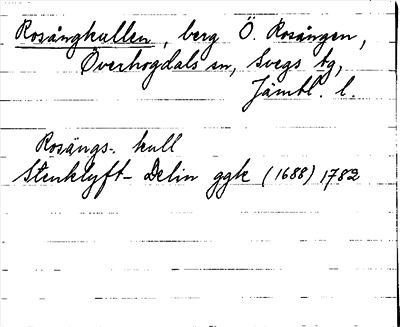 Rosångkullen, berg Ö. Rosången,
Överhogdals sn, Svegs tg,
Jämtl. l.
Rosångs- kull
Stenklyft- Delin ggk (1688) 1782